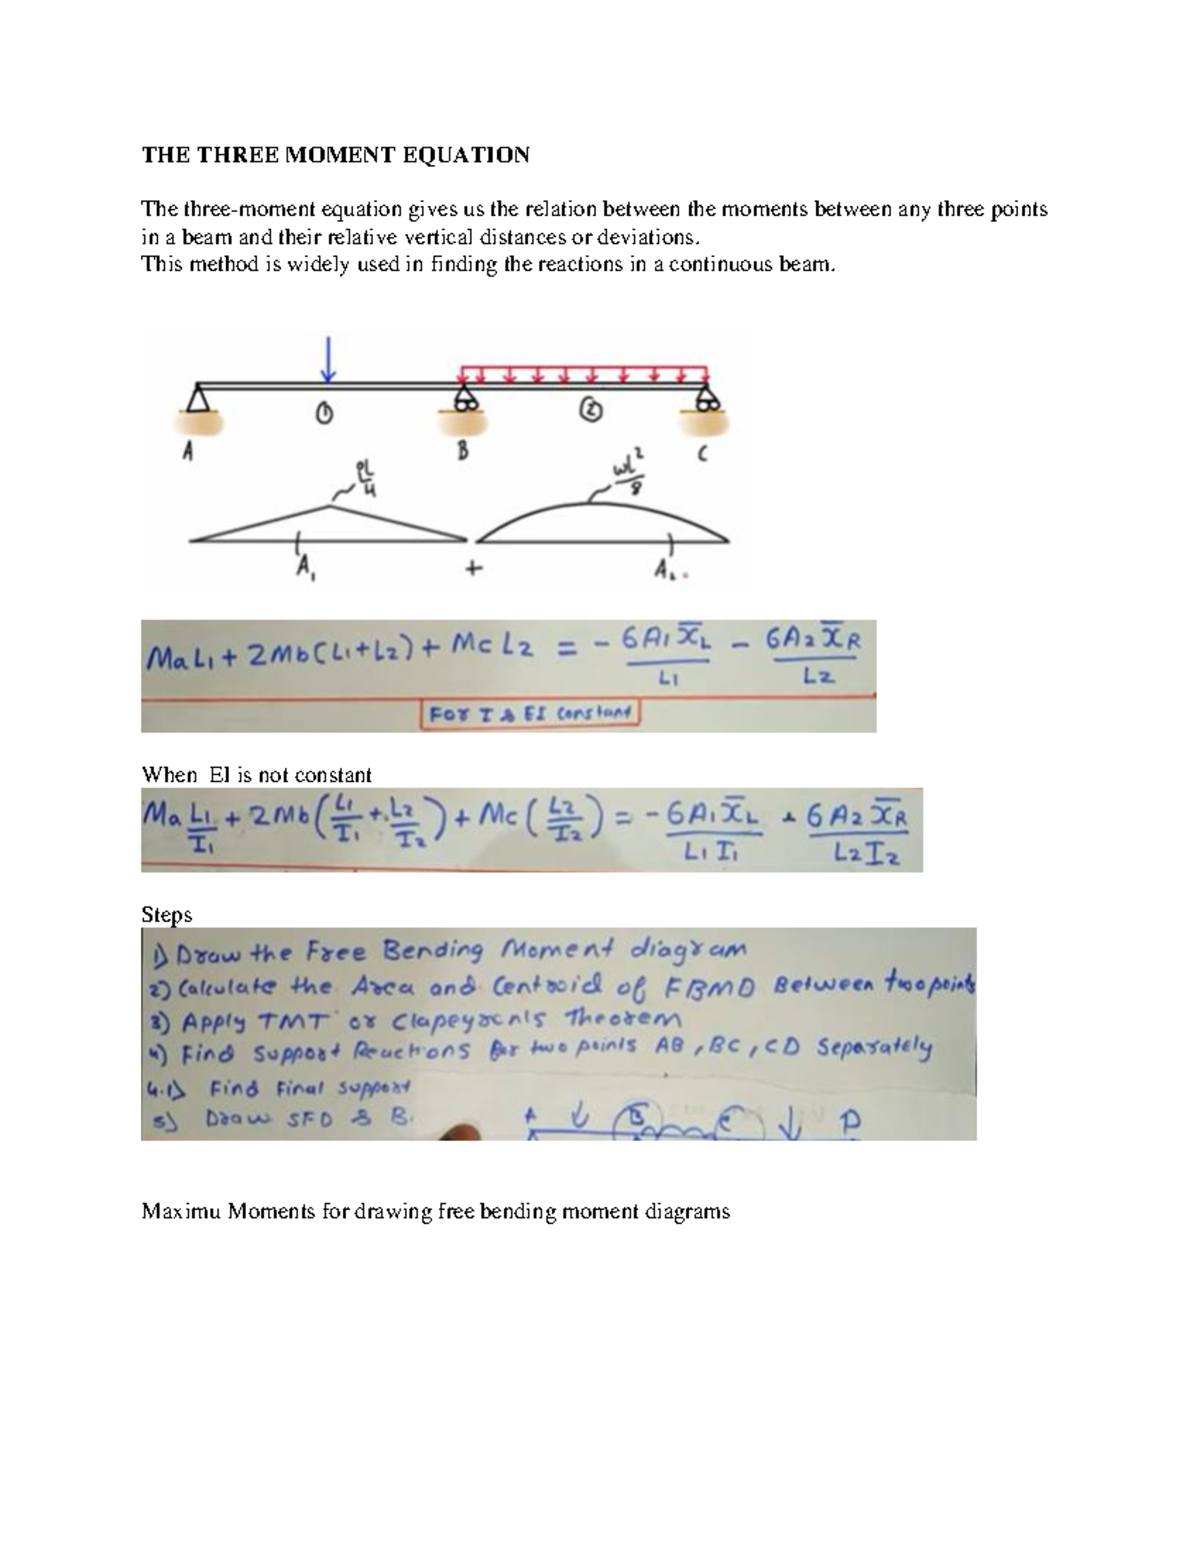 THE THREE MOMENT EQUATION
The three-moment equation gives us the relation between the moments between any three points
in a beam and their relative vertical distances or deviations.
This method is widely used in finding the reactions in a continuous beam.
① ②
A B C
PL/4 wl²/8
A₁ + A₂.
MaL1 + 2Mb(L1+L2) + McL2 = - 6A1x̄L/L1 - 6A2x̄R/L2
For I & EI Constant
When EI is not constant
Ma L1/I1 + 2Mb(L1/I1 + L2/I2) + Mc(L2/I2) = - 6A1x̄L/L1I1 - 6A2x̄R/L2I2
Steps
1) Draw the Free Bending Moment diagram
2) Calculate the Area and Centroid of FBMD Between two points
3) Apply TMT or Clapeyron's Theorem
4) Find Support Reactions for two points AB, BC, CD Separately
4.1) Find Final Support
5) Draw SFD & B.
A B C D
Maximu Moments for drawing free bending moment diagrams